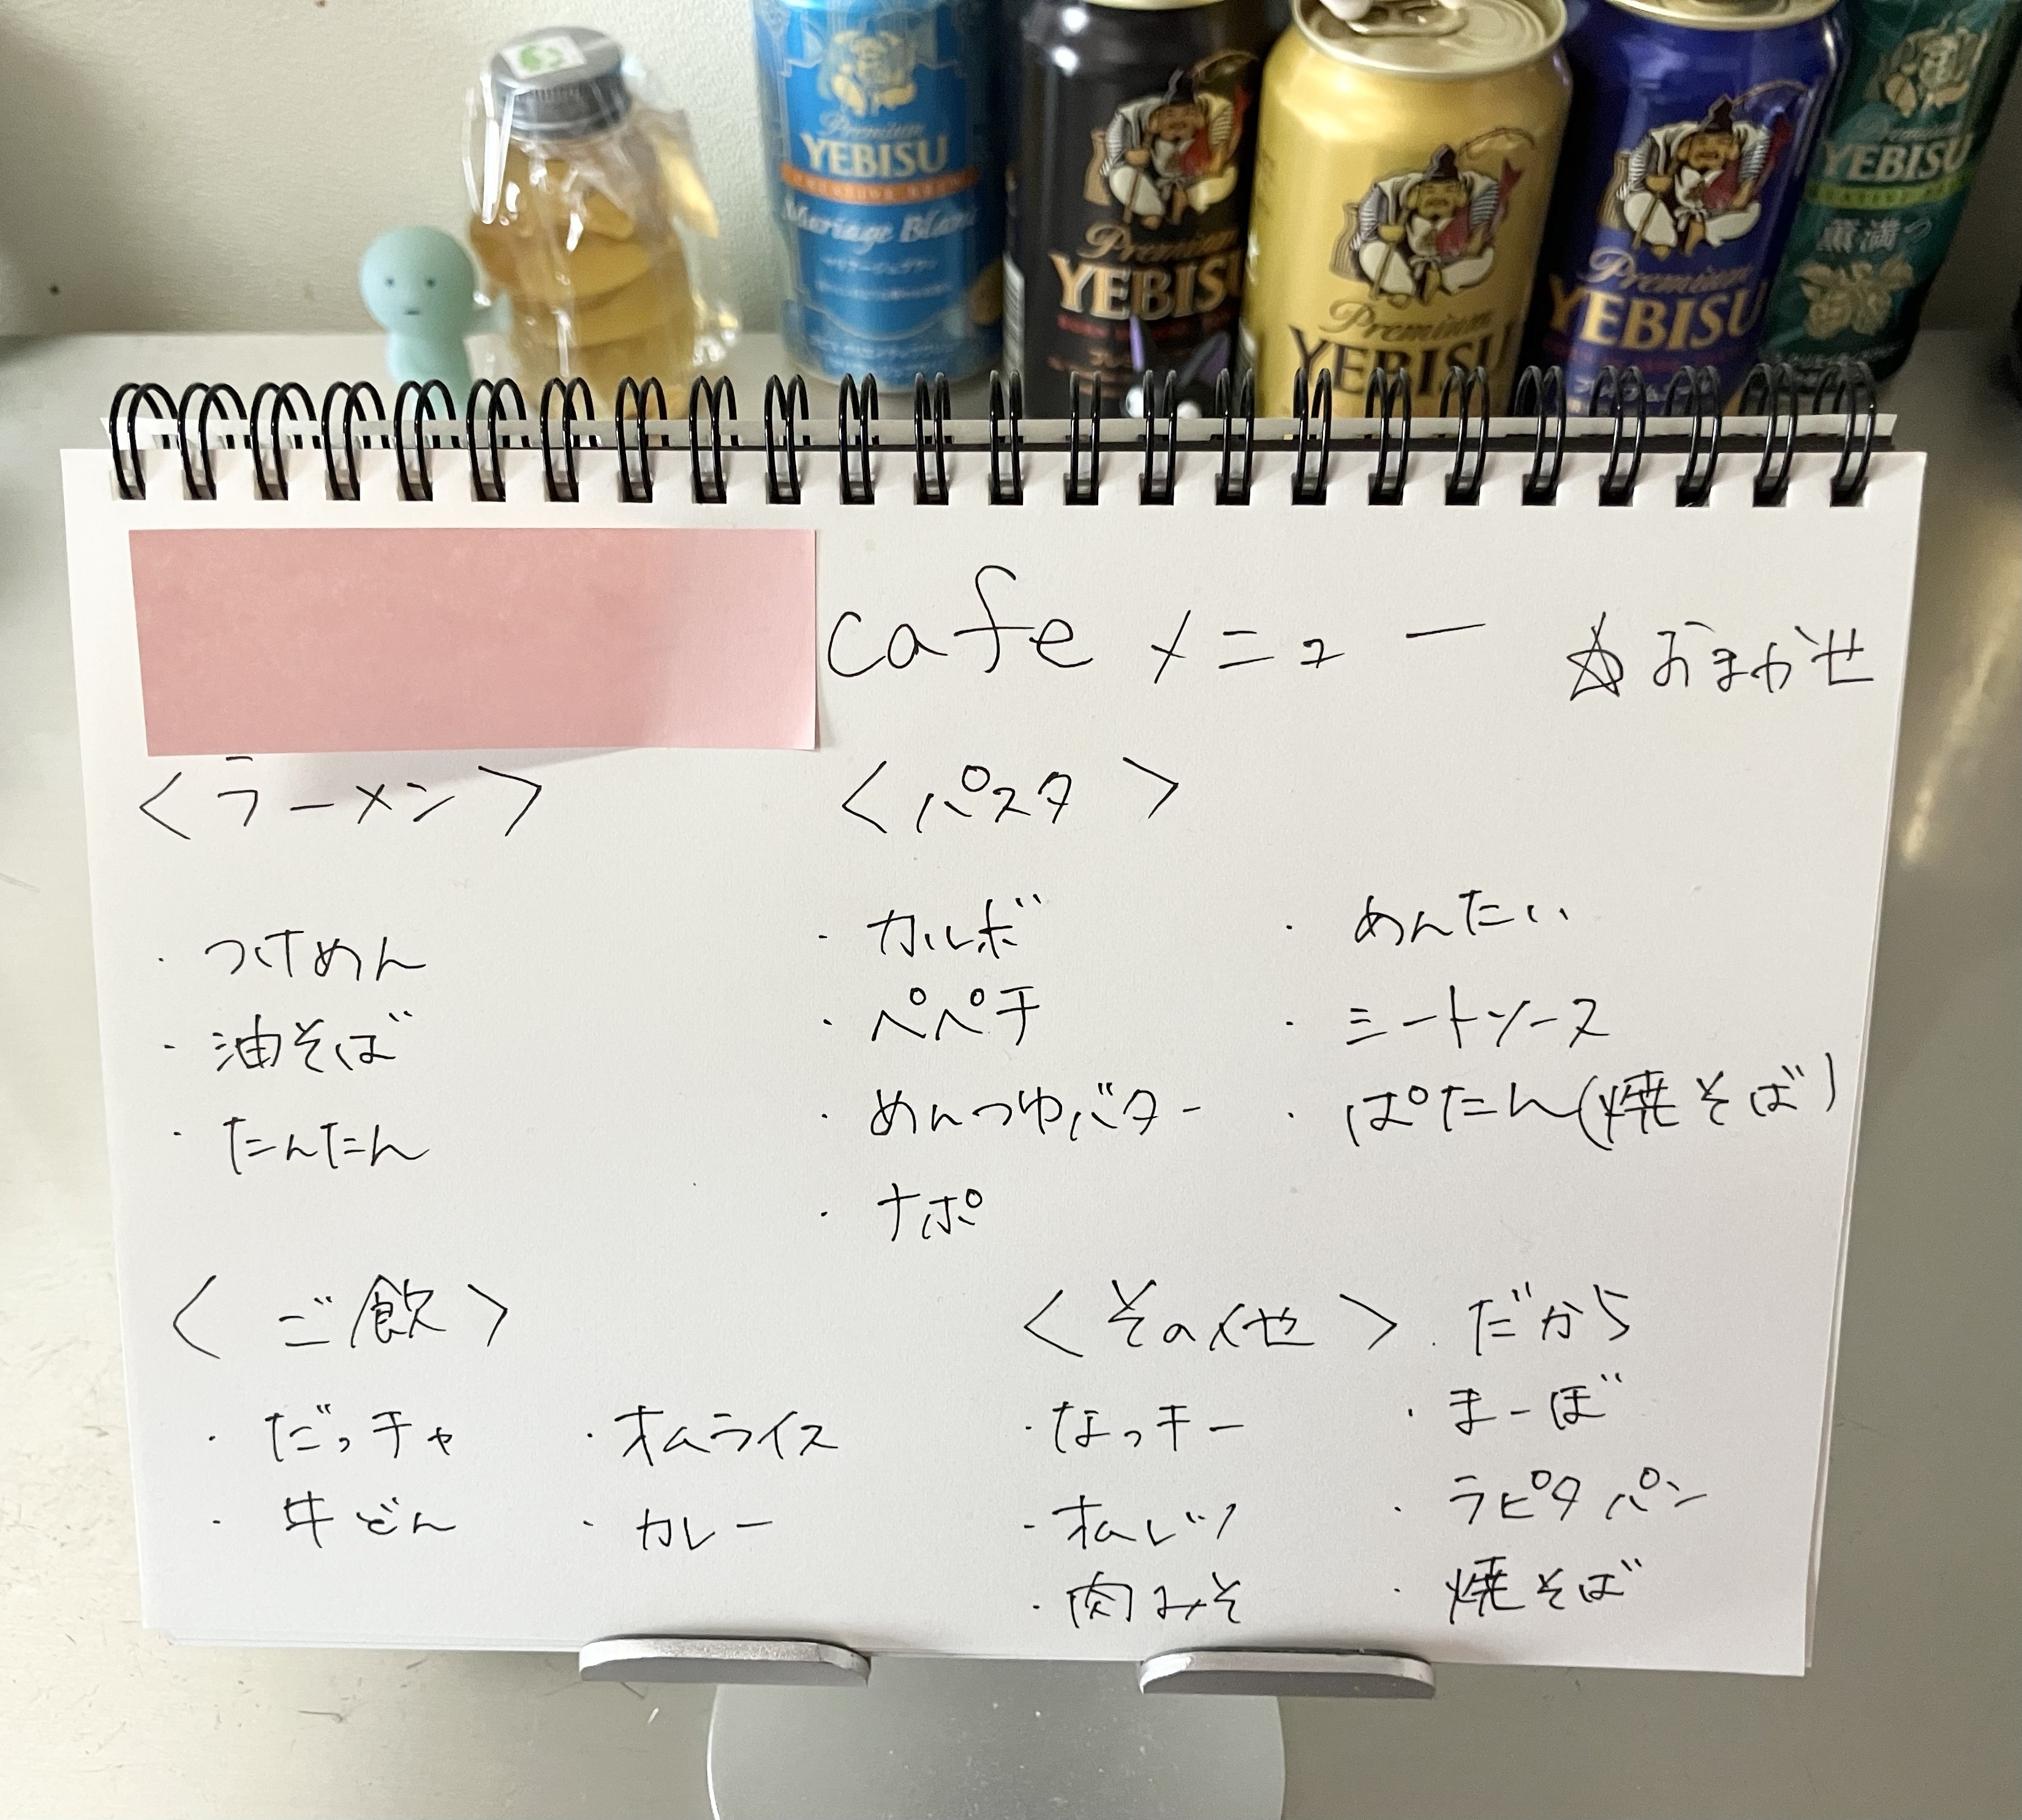 Premium
YEBISU
Mariage Blanc
Premium
YEBIS
Premium
YEBISU
Premium
YEBISU
Premium
YEBISU
薫満つ
cafe メニュー ☆おまかせ
<ラーメン>
・つけめん
・油そば
・たんたん
<パスタ>
・カルボ
・ペペチ
・めんつゆバター
・ナポ
・めんたい
・ミートソース
・ぱたん(焼そば)
<ご飲>
・だっチャ
・牛どん
・オムライス
・カレー
<その他>
・なっキー
・オムレツ
・肉みそ
・だから
・まーぼ
・ラピタパン
・焼そば